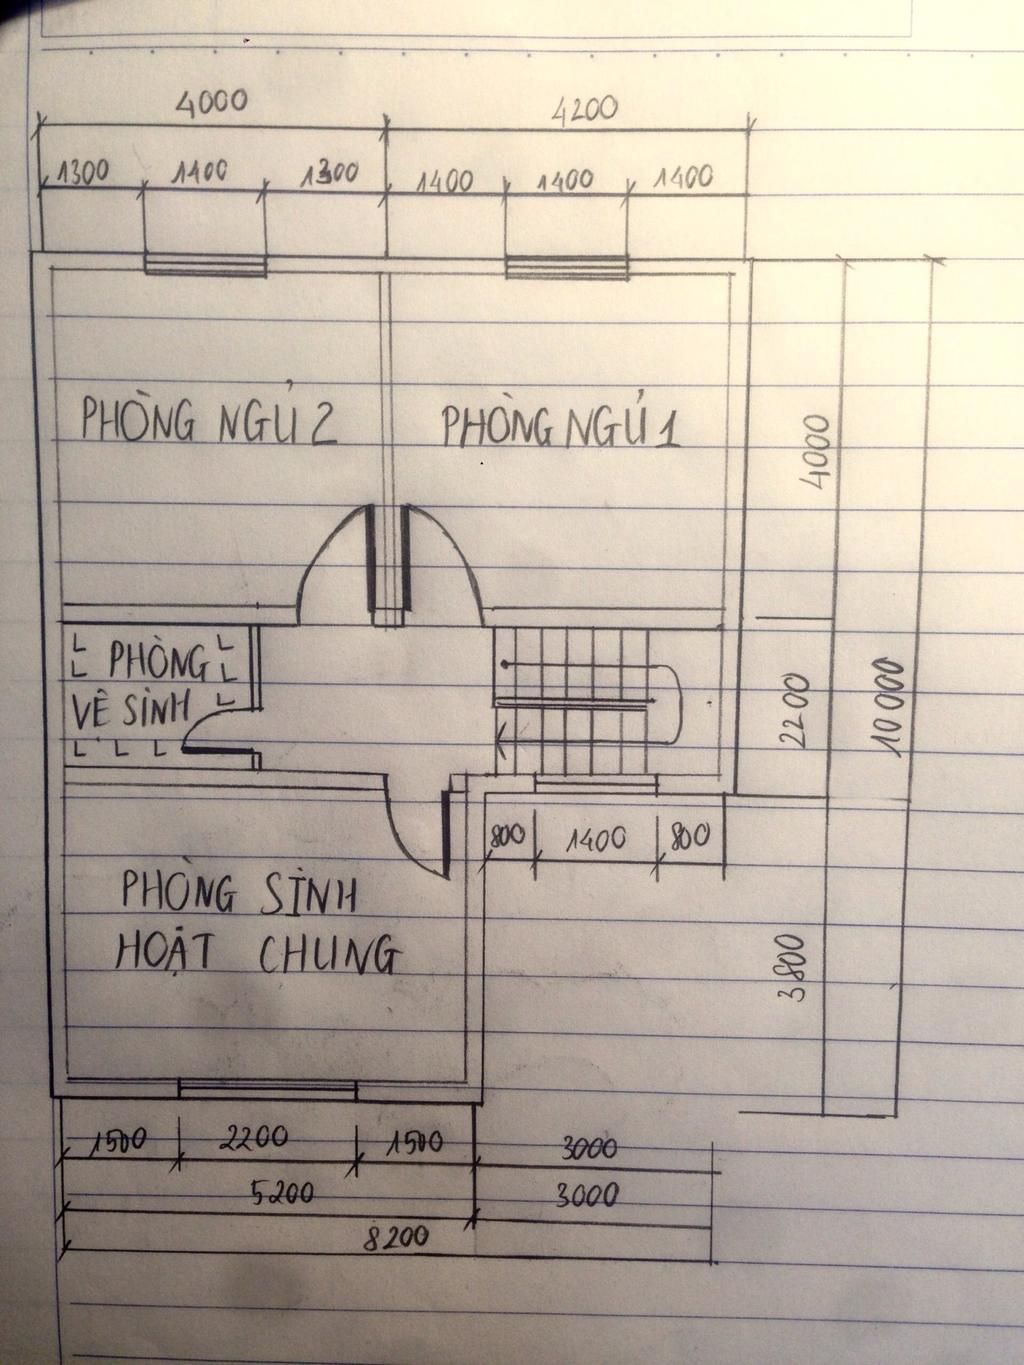 4000 4200
1300 1400 1300 1400 1400 1400
PHÒNG NGỦ 2
PHÒNG NGỦ 1
4000
PHÒNG
VỆ SINH
2200
10 000
800 1400 800
PHÒNG SINH
HOẠT CHUNG
3800
1500 2200 1500 3000
5200 3000
8200